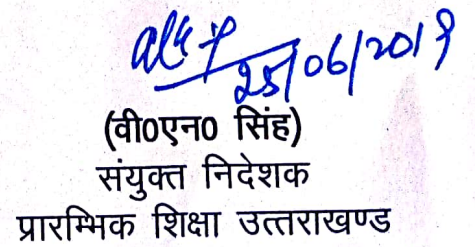 25/06/2019
(वी0एन0 सिंह)
संयुक्त निदेशक
प्रारम्भिक शिक्षा उत्तराखण्ड